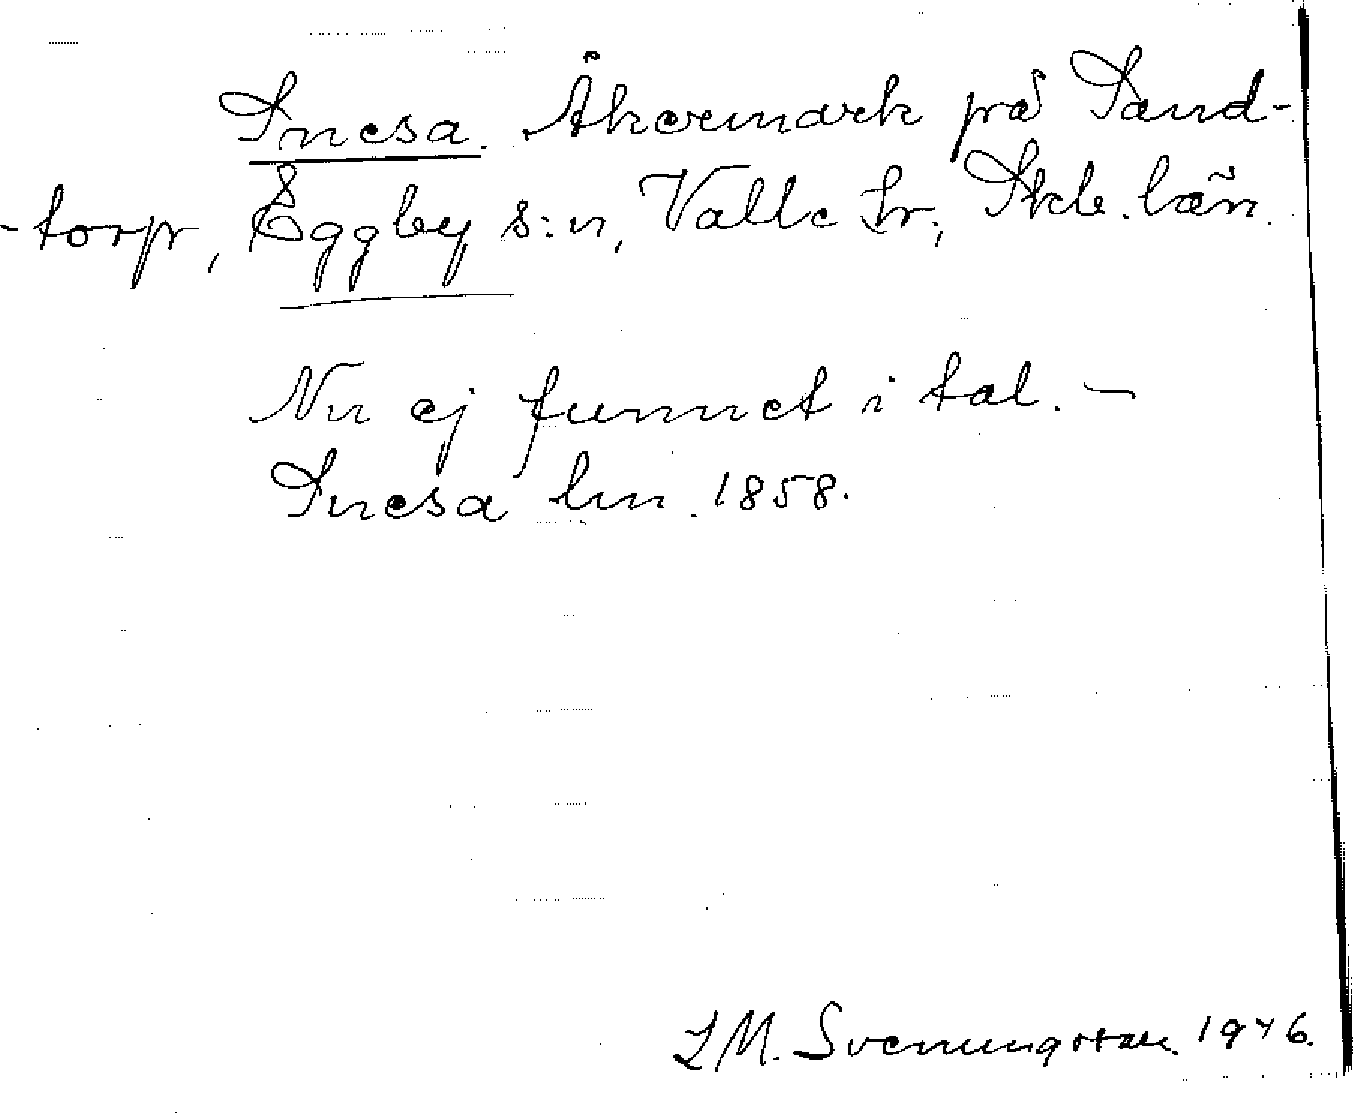 Snesa. Åkermark på Sand-
-torp, Eggby s:n, Valle hr; Skb. län.
Nu ej funnet i tal. –
Snesa lm. 1858.
L M. Svenungsson. 1946.